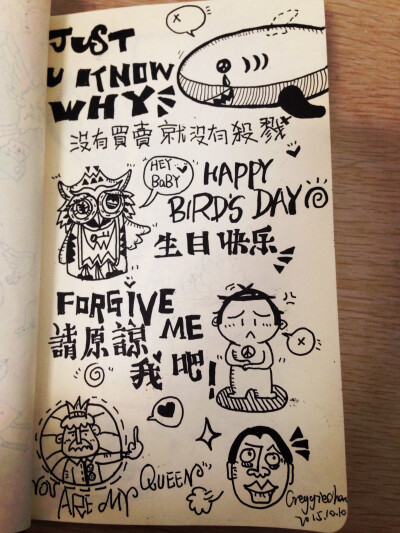 JUST
U KNOW
WHY
沒有買賣 就沒有殺戮
HEY
BABY
HAPPY
BIRDS DAY
生日快乐
FORGIVE
ME
請原諒
我吧!
YOU ARE MY QUEEN
2015.10.10